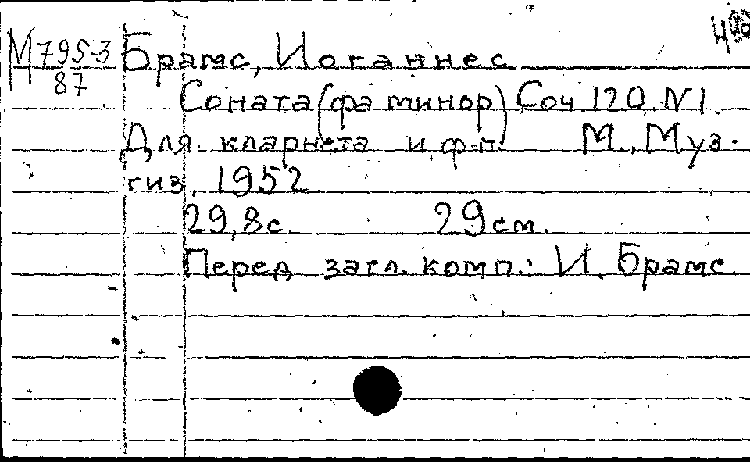 М 795-3
87
Брамс, Иоганнес
Соната (фа минор) Соч 120 N1.
Для кларнета и ф-п. М., Муз-
гиз, 1952
29,8с. 29см.
Перед загл. комп.: И. Брамс